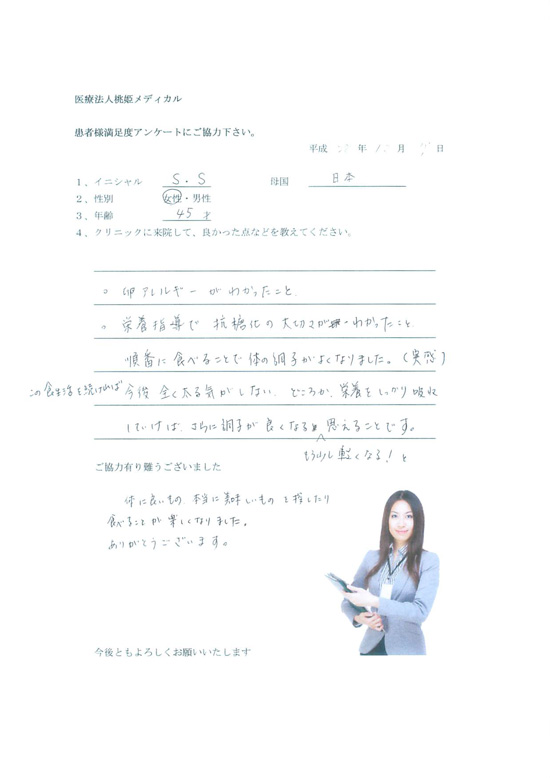 医療法人桃姫メディカル
患者様満足度アンケートにご協力下さい。
平成 年 月 日
1、イニシャル S.S 母国 日本
2、性別 女性・男性
3、年齢 45才
4、クリニックに来院して、良かった点などを教えてください。
。卵アレルギーがわかったこと、
。栄養指導で 抗糖化の大切さが わかったこと
順番に食べることで体の調子がよくなりました。(実感)
この食生活を続ければ 今後 全く太る気がしない、どころか、栄養をしっかり吸収
していけば、さらに調子が良くなる 思えることです。
もう少し軽くなる!と
ご協力有り難うございました
体に良いもの、本当に美味しいものを探したり
食べることが楽しくなりました。
ありがとうございます。
今後ともよろしくお願いいたします